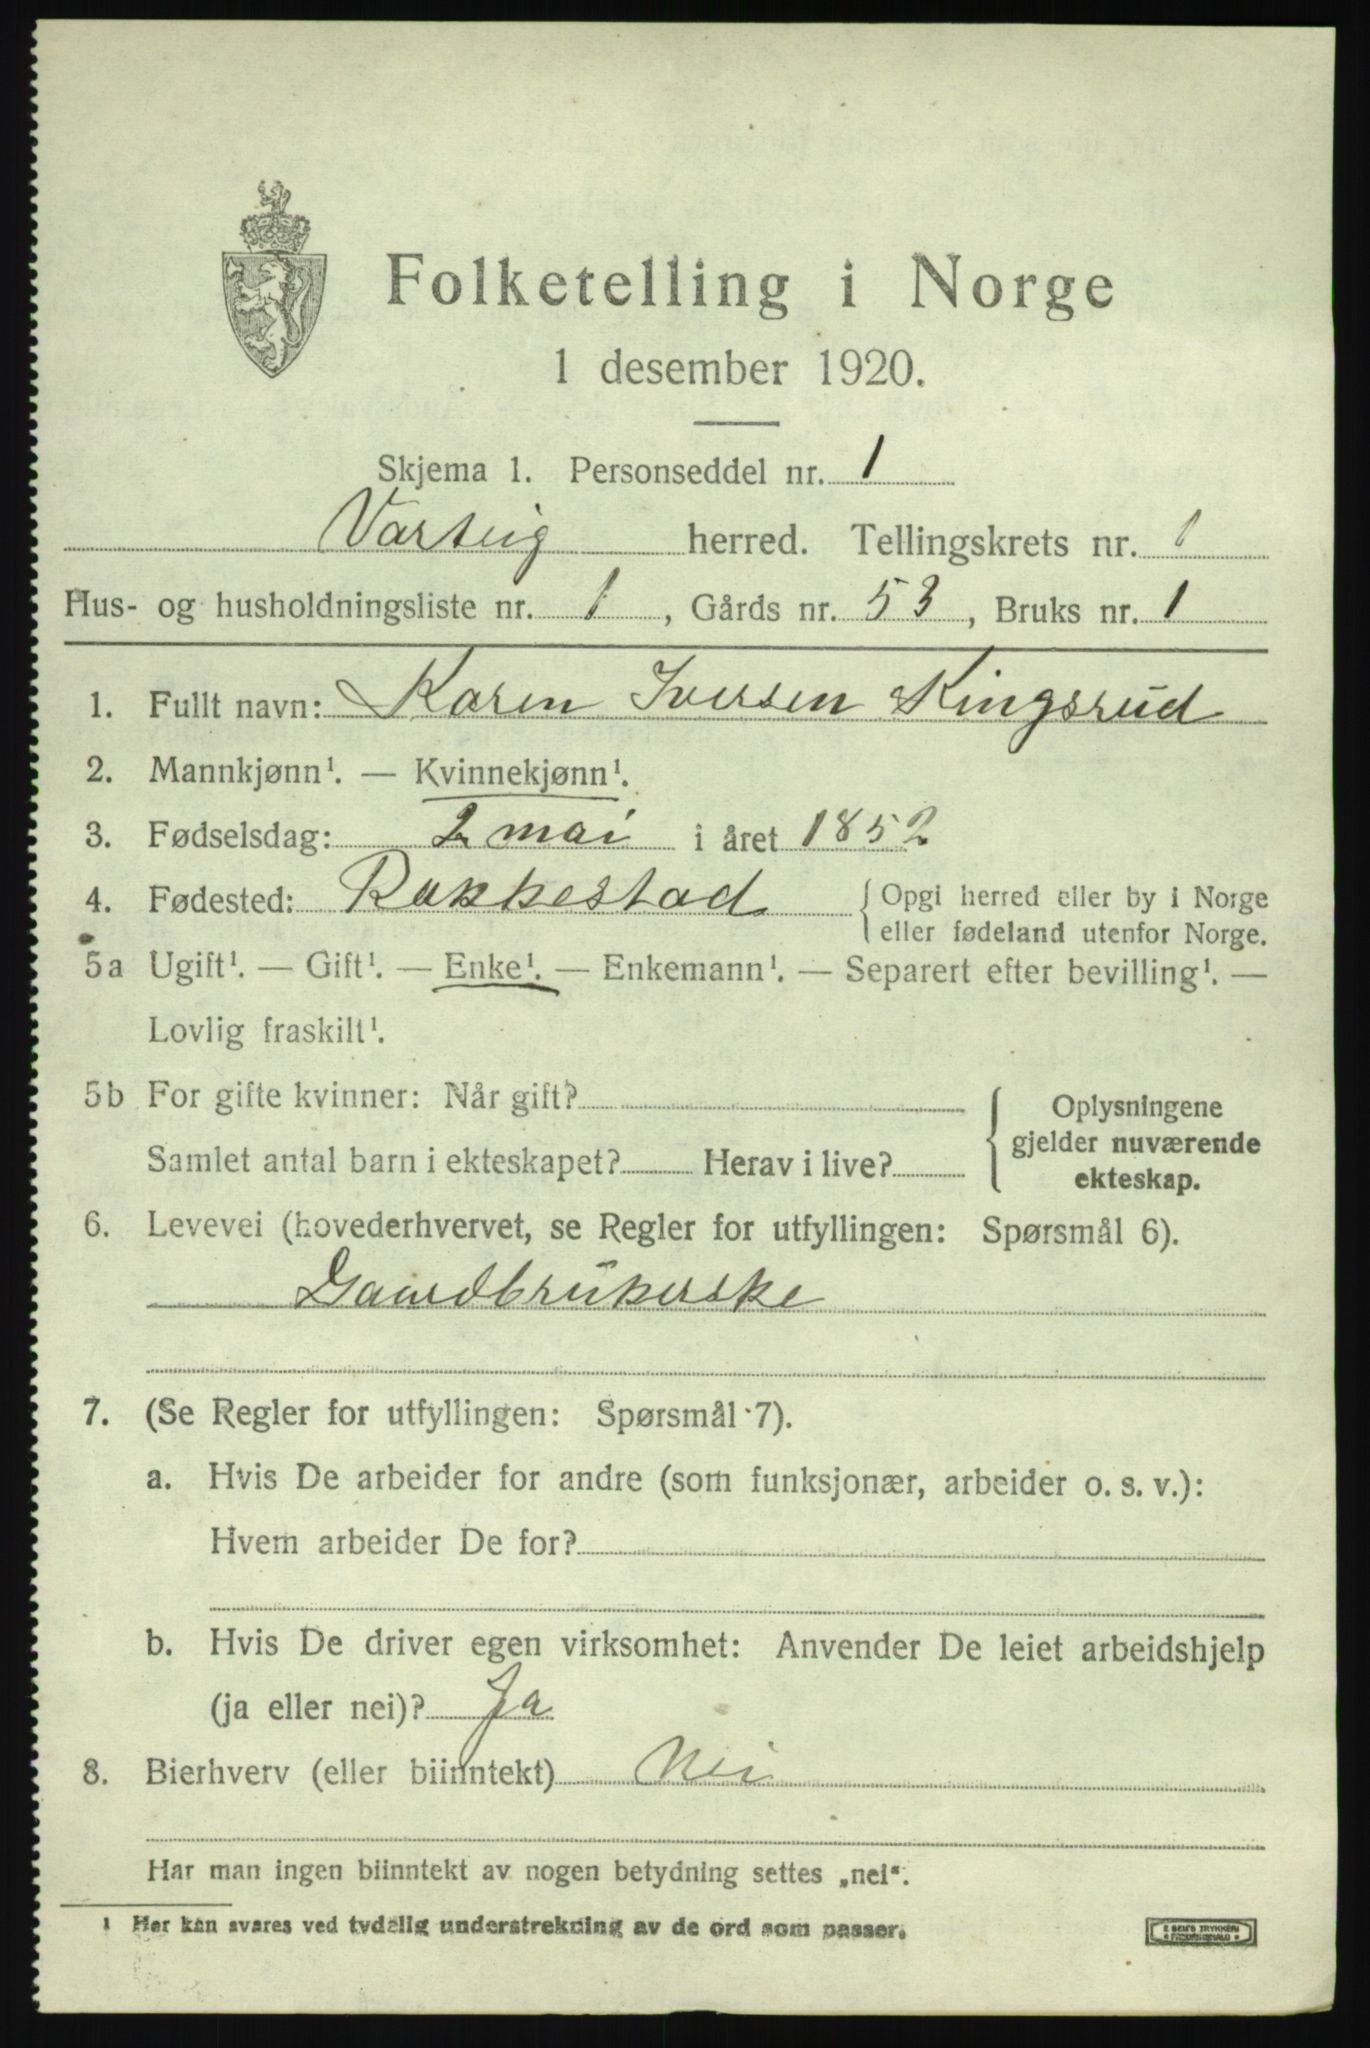 Folketelling i Norge
1 desember 1920.
Skjema 1. Personseddel nr. 1
Varteig herred. Tellingskrets nr. 1
Hus- og husholdningsliste nr. 1, Gårds nr. 53, Bruks nr. 1
1. Fullt navn: Karen Iversen Kingsrud
2. Mannkjønn¹. — Kvinnekjønn¹.
3. Fødselsdag: 2 mai i året 1852
4. Fødested: Rakkestad { Opgi herred eller by i Norge
eller fødeland utenfor Norge.
5a Ugift¹. — Gift¹. — Enke¹. — Enkemann¹. — Separert efter bevilling¹. —
Lovlig fraskilt¹.
5b For gifte kvinner: Når gift?
Samlet antal barn i ekteskapet? Herav i live?
{ Oplysningene
gjelder nuværende
ekteskap.
6. Levevei (hovederhvervet, se Regler for utfyllingen: Spørsmål 6).
Gaardbrukerske
7. (Se Regler for utfyllingen: Spørsmål 7).
a. Hvis De arbeider for andre (som funksjonær, arbeider o. s. v.):
Hvem arbeider De for?
b. Hvis De driver egen virksomhet: Anvender De leiet arbeidshjelp
(ja eller nei)? Ja
8. Bierhverv (eller biinntekt) Nei
Har man ingen biinntekt av nogen betydning settes „nei“.
¹ Her kan svares ved tydelig understrekning av de ord som passer.